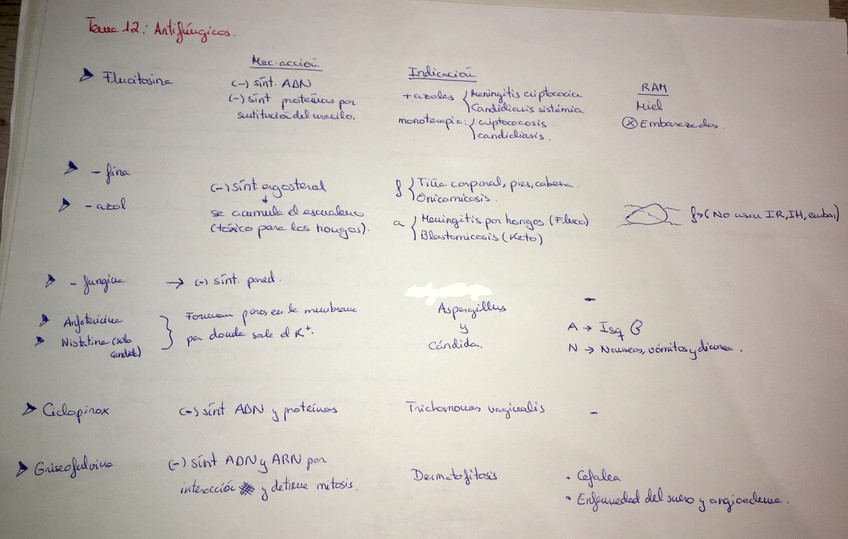 Tema 12: Antifúngicos.
Mec. acción Indicación RAM
Flucitosina (-) sínt. ADN
(-) sínt proteínas por
sustitución del uracilo.
+ azoles { Meningitis criptocócica
Candidiasis sistémica
monoterapia: { criptococosis
candidiasis.
Miel
Embarazadas.
- fina
- azol
(-) sínt ergosterol
↓
se acumula el escualeno
(tóxico para los hongos).
f { Tiña corporal, pies, cabeza.
Onicomicosis.
a { Meningitis por hongos (Fluco)
Blastomicosis (Keto)
f → (No usar IR, IH, embar)
- fungina → (-) sínt. pared. -
Anfotericina
Nistatina (solo
candida)
} Forman poros en la membrana
por donde sale el K+.
Aspergillus
y
Cándida.
A → Isq
N → Nauseas, vómitos y diarrea.
Ciclopirox (-) sínt ADN y proteínas Trichomonas vaginalis -
Griseofulvina (-) sínt ADN y ARN por
interacción y detiene mitosis.
Dermatofitosis
· Cefalea
· Enfermedad del suero y angioedema.